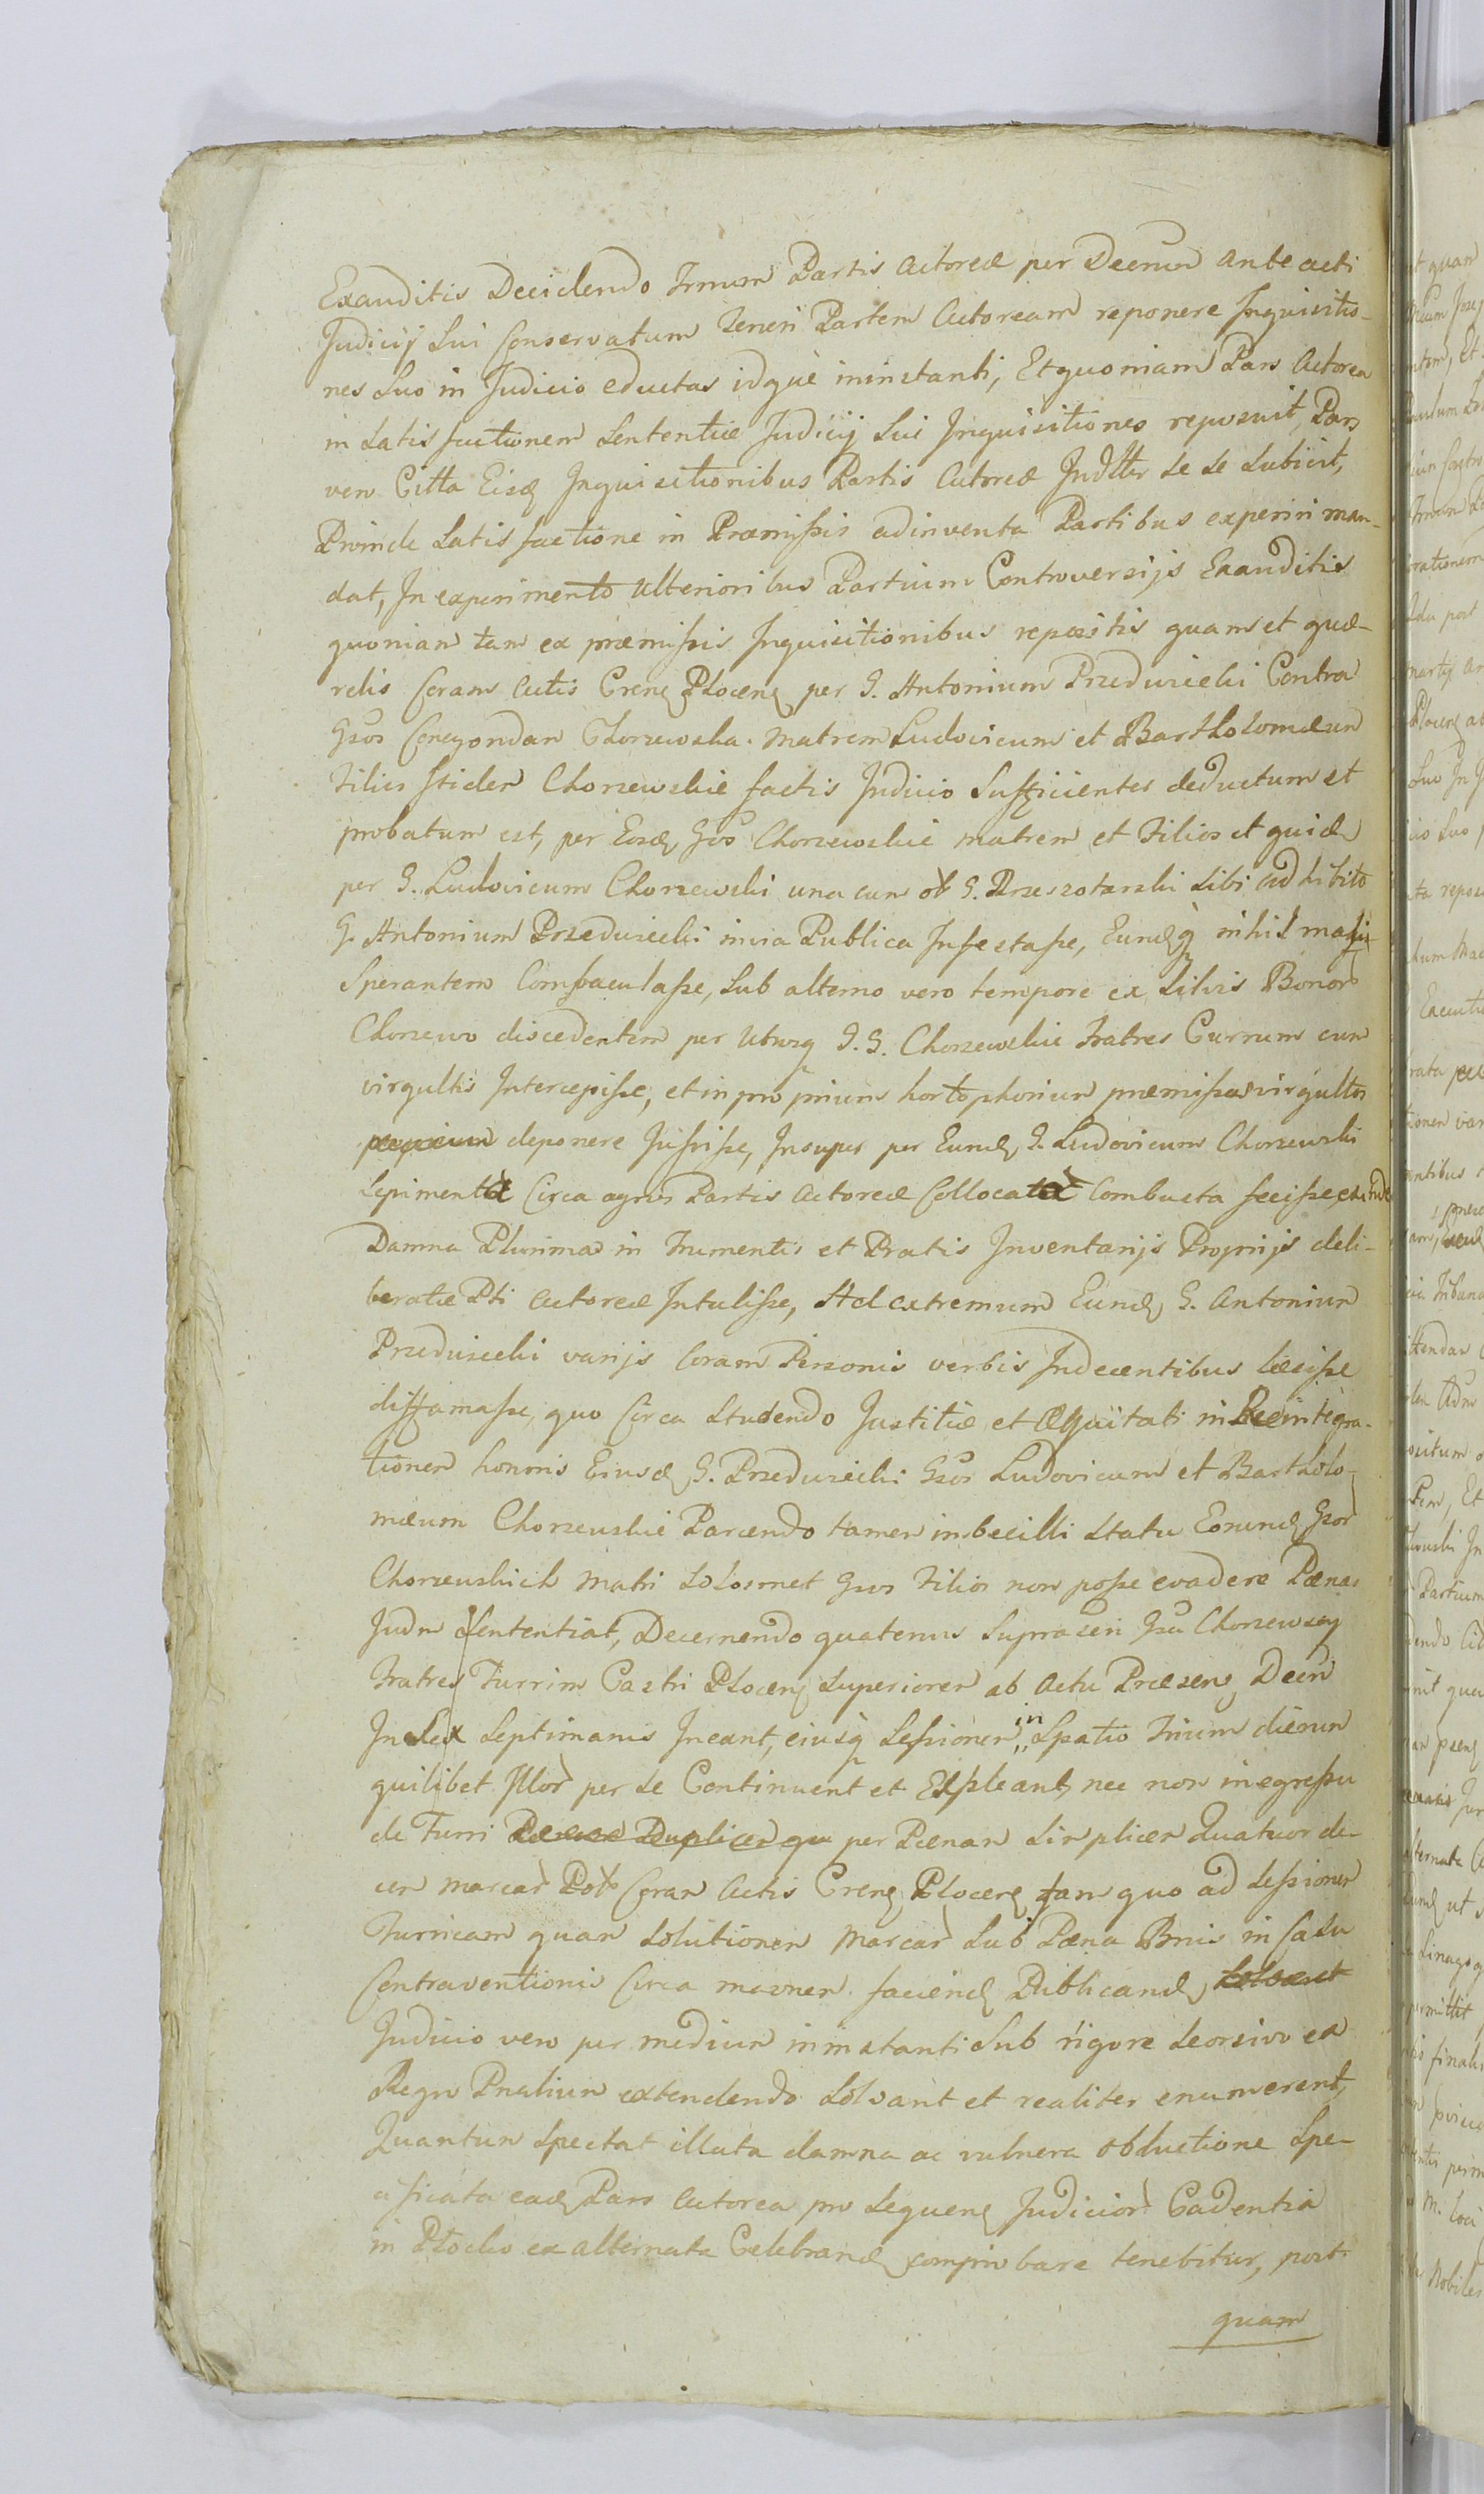 Exauditis Decidendo Trnum Partis Actoreæ per Decrum ante acti
Judicij Sui Conservatum Teneri Partem Actoream reponere Inquisitio-
nes Suo in Judicio eductas idque ininstanti, Et quoniam Pars Actorea
in Satis factionem Sententiæ Judicij Sui Inquisitiones reposuit, Pars
vero Citta Eisd Inquisitionibus Partis Actoreæ Judltr se se Subiicit,
Proinde Satis factione in Præmissis adinventa Partibus experiri man-
dat, In experimento Ulterioribus Partium Controversijs Exauditis
quoniam tam ex præmissis Inquisitionibus repositis quam et quæ-
relis Coram Actis Crens Plocens per G. Antonium Przeduiecki Contra
Gsos Conegondam Chorzewska Matrem Ludovicum et Bartholomæum
Filios Chorzewskie factis Judicio Sufficienter deductum et
probatum est, per Eosd Gsos Chorzewskie matrem et Filios et quid
per G. Ludovicum Chorzewski una cum G. Sibi adhibito
G. Antonium Przeduiecki in via Publica Infestasse, Eundq nihil mali
Sperantem Combaculasse, Sub alterno vero tempore ex Silvis Bonor
Chorzewo discedentem per Utrosq G. G. Chorzewskie Fratres Currum cum
virgultis Intercepisse, et in proprium hortophorium præmissa virgulta
deponere Jussisse, Insuper per Eund G. Ludovicum Chorzewski
Sepimenta Circa agros Partis Actoreæ Collocata Combusta fecisse, exinde
Damna Plurima in Frumentis et Pratis Inventarijs Proprijs deli-
beratæ Pti Actoreæ Intulisse, Ad extremum Eund G. Antonium
Przeduiecki varijs Coram Personis verbis Indecentibus læsisse
diffamasse, quo Circa Studendo Justitiæ et Æquitati in Reintegra-
tionem honoris Eiusd G. Przeduiecki Gsos Ludovicum et Bartholo-
mæum Chorzewskie Parcendo tamen imbecilli Statu Eorund Gsor
Chorzewskich Matri Solosmet Gsos Filios non posse evadere Pænas
Judm Sententiat, Decernendo quatenus Suprascri Gsi Chorzewscy
Fratres Turrim Castri Plocens Superiorem ab Actu Præsens Decri
In Sex Septimanis Ineant, eiusq Sessionem in Spatio Trium dierum
quilibet Illor per se Continuent et Expleant, nec non in egressu
de Turri per Pænam Simplicem Quatuor de-
cem Marcar Pol Coram Actis Crens Plocens tam quo ad Sessionem
Turricam quam Solutionem Marcar Sub Pæna Bnis in Casu
Contraventionis Circa faciend Publicand
Judicio vero per medium ininstanti Sub rigore Seorsivo ex
Regno extendendo Solvant et realiter enumerent,
Quantum Spectat illata damna ac vulnera obductione Spe-
cificata ead Pars Actorea pro Sequens Judicior Cadentia
in Plocko ex alternata Celebrand comprobare tenebitur, post-
quam